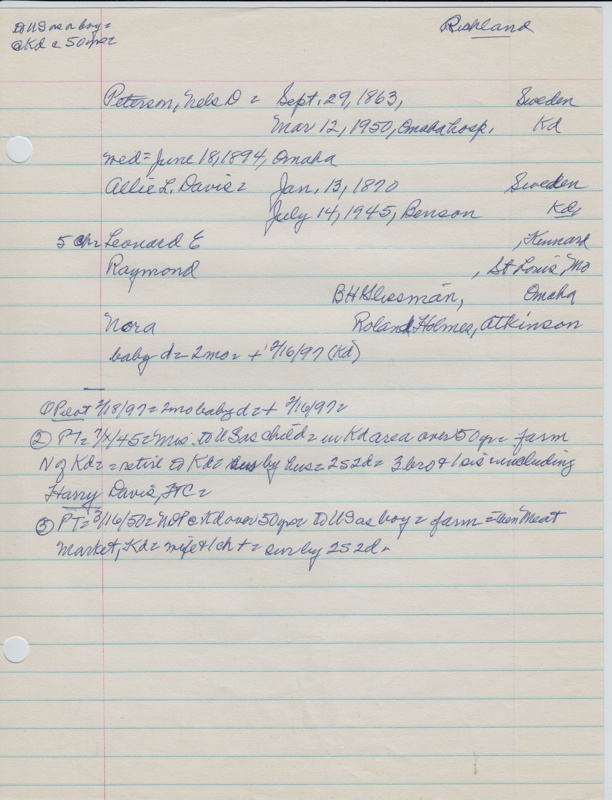 to US as a boy =
@ Kd c 50 yrs =
Richland
Peterson, Nels D = Sept. 29, 1863, Sweden
Mar 12, 1950, Omaha hosp. Kd
med = June 18, 1894, Omaha
Allie L. Davis = Jan. 13, 1870 Sweden
July 14, 1945, Benson Kd
5 chr Leonard E , Kennard
Raymond , St Louis, Mo
B H Glissman, Omaha
Nora Roland Holmes, Atkinson
baby d = 2mo = + 2/16/97 (Kd)
① Pilot 2/18/97 = 2mo baby d = + 2/16/97 =
② PT = 7/ /45 = Mrs. to US as child = in Kd area over 50 yr = farm
N of Kd = = retire to Kd = sur by hus = 2s 2d = 3 bro & 1 sis = including
Harry Davis, FtC =
③ PT = 3/16/50 = NDP @ Kd over 50 yrs = to US as boy = farm = then Meat
Market, Kd = wife & 1 ch + = sur by 2s 2d =